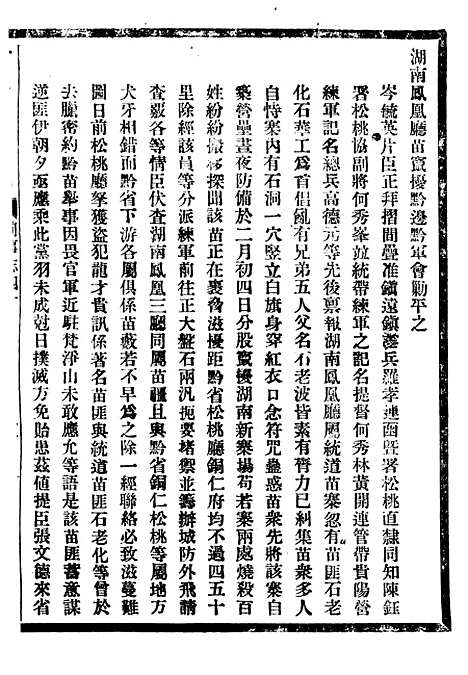 湖南鳳凰廳苗竄擾黔邊黔軍會勦平之
岑毓英片臣正拜摺間疊准鎮遠鎮總兵羅孝連函暨署松桃直隸同知陳鈺
署松桃協副將何秀峯並統帶練軍之記名提督何秀林黃開連管帶貴陽營
練軍記名總兵高德元等先後禀報湖南鳳凰廳屬統道苗寨忽有苗匪石老
化石華工爲首倡亂有兄弟五人父名石老波皆素有膂力已糾集苗衆多人
自恃寨內有石洞一穴竪立白旗身穿紅衣口念符咒蠱惑苗衆先將該寨自
築營壘晝夜防備於二月初四日分股竄擾湖南新寨場苟若寨兩處燒殺百
姓紛紛搬移探聞該苗正在裹脅滋擾距黔省松桃廳銅仁府均不過四五十
里除經該員等分派練軍前往正大盤石兩汛扼要堵禦並籌辦城防外飛請
查覈各等情臣伏查湖南鳳凰三廳同屬苗疆且與黔省銅仁松桃等屬地方
犬牙相錯而黔省下游各屬俱係苗藪若不早爲之除一經聯絡必致滋蔓難
圖日前松桃廳拏獲盜犯龍才貴訊係著名苗匪與統道苗匪石老化等曾於
去臘密約黔苗舉事因畏官軍近駐梵淨山未敢應允等語是該苗匪蓄意謀
逆匪伊朝夕亟應乘此黨羽未成尅日撲滅方免貽患茲値提臣張文德來省